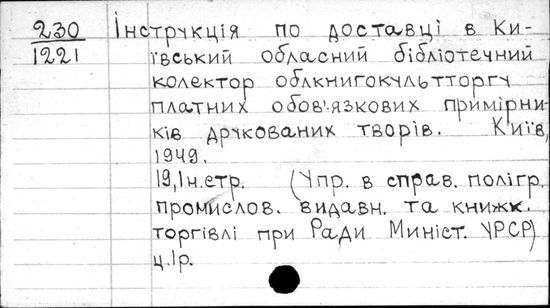 230 Інструкція по доставці в Ки-
1221 ївський обласний бібліотечний
колектор облкнигокультторгу
платних обов'язкових примірни-
ків друкованих творів. Київ,
1949.
19,1н.стр. (Упр. в справ. полігр.
промислов. видавн. та книжк.
торгівлі при Ради Мініст. УРСР)
ц.1р.